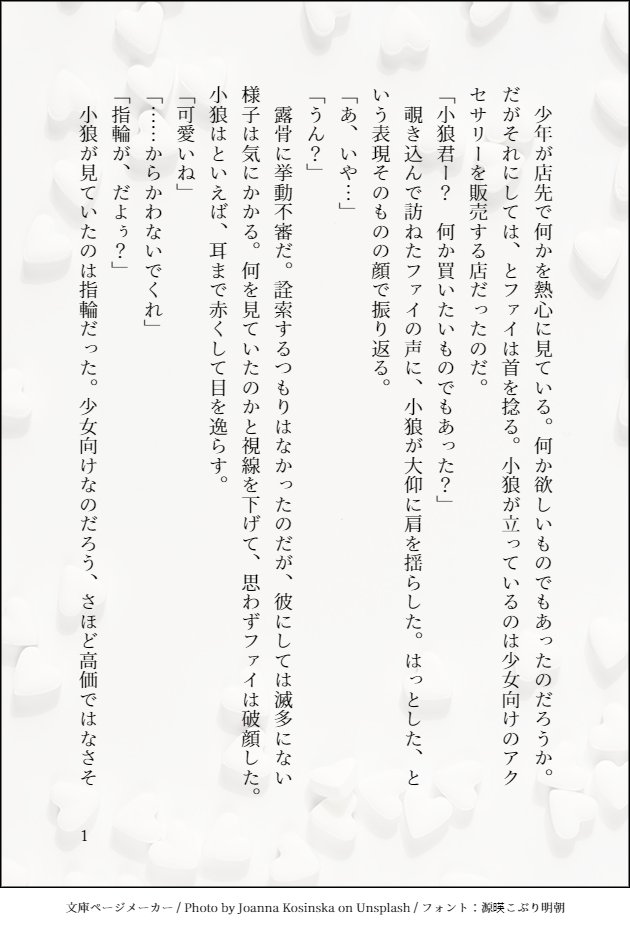 少年が店先で何かを熱心に見ている。何か欲しいものでもあったのだろうか。
だがそれにしては、とファイは首を捻る。小狼が立っているのは少女向けのアク
セサリーを販売する店だったのだ。
「小狼君ー？　何か買いたいものでもあった？」
　覗き込んで訪ねたファイの声に、小狼が大仰に肩を揺らした。はっとした、と
いう表現そのものの顔で振り返る。
「あ、いや…」
「うん？」
　露骨に挙動不審だ。詮索するつもりはなかったのだが、彼にしては滅多にない
様子は気にかかる。何を見ていたのかと視線を下げて、思わずファイは破顔した。
小狼はといえば、耳まで赤くして目を逸らす。
「可愛いね」
「……からかわないでくれ」
「指輪が、だよぅ？」
　小狼が見ていたのは指輪だった。少女向けなのだろう、さほど高価ではなさそ
1
文庫ページメーカー / Photo by Joanna Kosinska on Unsplash / フォント：源暎こぶり明朝